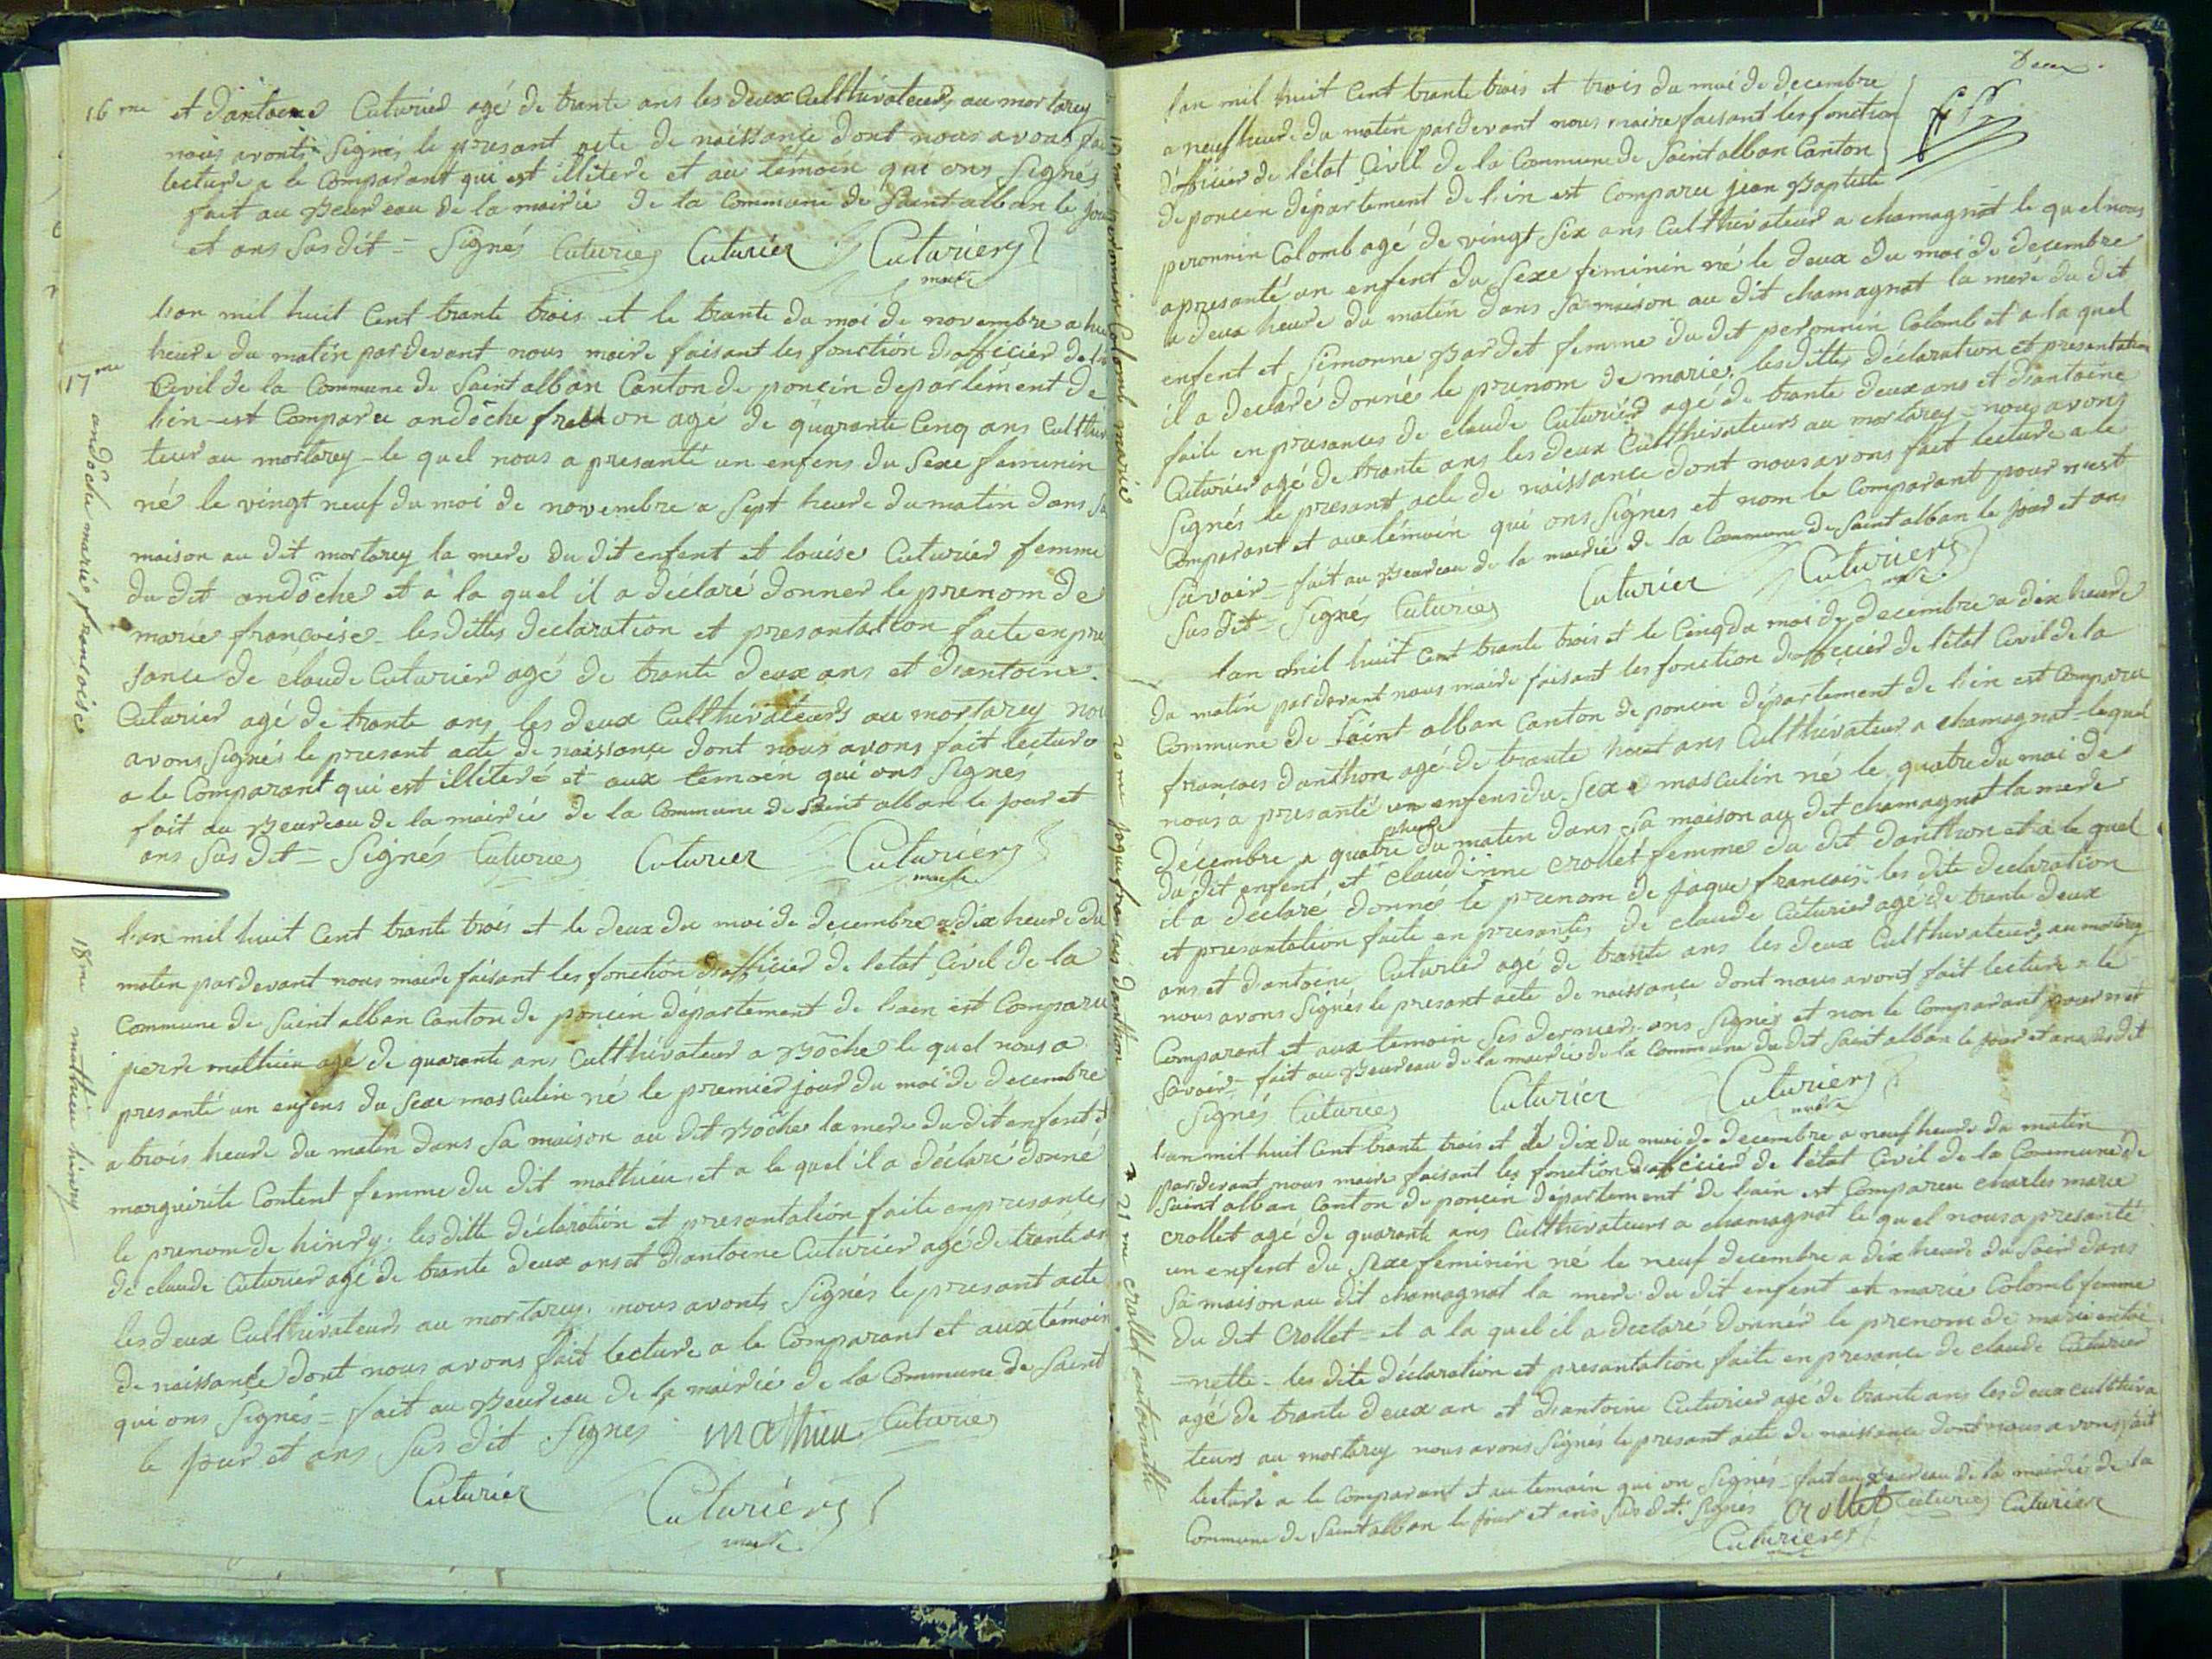 16 me
et d'antoene Cuturier agé de trante ans les deux Culthivateurs au mortarey
nous avonts Signés le presant acte de naissance dont nous avons fai
lecture a le Comparant qui est illiteré et au témoin qui ons Signés
fait au Beureau de la mairie de la Commune de Saint alban le jour
et ans Sus dit = Signés Cuturier Cuturier Cuturier
maire
l'an mil huit Cent trante trois et le trante du moi de novembre a hui
heure du matin pardevant nous maire faisant les fonction d'officier de l'é
17 me
Civil de la Commune de Saint alban Canton de poncin departement de
l'in est Comparu andoche frellon agé de quarante Cinq ans Culthiva
teur au mortarey le quel nous a presanté un enfens du Sexe feminin
né le vingt neuf du moi de novembre a Sept heure du matin dans Sa
maison au dit mortarey la mere du dit enfent et louise Cuturier femme
du dit andoche et a la quel il a déclaré donner le prenom de
marie francoise les dittes declaration et presantation faite en pre
sance de claude Cuturier agé de trante deux ans et d'antoine
Cuturier agé de trante ans les deux Culthivateurs au mortarey nou
avons Signés le presant acte de naissance dont nous avons fait lecture
a le Comparant qui est illiteré et aux temoin qui ons Signés
fait au Beureau de la mairie de la Commune de Saint alban le jour et
ans Sus dit = Signés Cuturier Cuturier Cuturier
maire
andoche marie francoise
l'an mil huit Cent trante trois et le deux du moi de decembre a dix heure du
matin pardevant nous maire faisant les fonction d'officier de l'etat Civil de la
Commune de Saint alban Canton de poncin département de l'ain est Comparu
pierre mathieu agé de quarante ans Culthivateur a Boche le quel nous a
presanté un enfens du Sexe masculin né le premier jour du moi de decembre
a trois heure du matin dans Sa maison au dit Boche la mere du dit enfent et
marguirite Content femme du dit mathieu et a le quel il a déclaré donné
le prenom de hinry. les ditte déclaration et presantation faite en presance
de claude Cuturier agé de trante deux ans et d'antoine Cuturier agé de trante an
les deux Culthivateurs au mortarey. nous avonts Signés le presant acte
de naissance dont nous avons fait lecture a le Comparant et aux témoin
qui ons Signés = fait au Beureau de la mairie de la Commune de Saint
le jour et ans Sus dit Signes mathieu Cuturier
Cuturier Cuturier
maire
18 me mathieu hinry
Decem
l'an mil huit Cent trante trois et trois du moi de decembre
a neuf heure du matin pardevant nous maire faisant les fonction
d'officier de l'état Civil de la Commune de Saint alban Canton
de poncin département de l'in est Comparu jean Baptiste
peronnin Colomb agé de vingt Six ans Culthivateur a chamagnat le quel nous
a presanté un enfent du Sexe féminin né le deux du moi de decembre
a deux heure du matin dans Sa maison au dit chamagnat la mere du dit
enfent et Simonne Bardet femme du dit peronnin Colomb et a la quel
il a declaré donné le prenom de marie. les dittes déclaration et presentation
faite en presances de claude Cuturier agé de trante deux ans et d'antoine
Cuturier agé de trante ans les deux Culthivateurs au mortarey nous avons
Signés le presant acte de naissance dont nous avons fait lecture a le
Comparant et aux témoin qui ons Signes et nom le Comparant pour n'est
Savoir = fait au Beureau de la mairie de la Commune de Saint alban le jour et ans
Sus dit = Signé Cuturier Cuturier Cuturier
maire
19 me peronnin Colomb marie
l'an mil huit Cent trante trois et le Cinq du moi de decembre a dix heure
du matin pardevant nous maire faisant les fonction d'officier de l'état Civil de la
Commune de Saint alban Canton de poncin département de l'in est Comparu
françois danthon agé de trante huit ans Culthivateur a chamagnat lequel
nous a presanté un enfens du Sexe masculin né le quatre du moi de
décembre a quatre heure du matin dans Sa maison au dit chamagnat la mere
du dit enfent et claudinne crollet femme du dit danthon et a le quel
il a declaré donnés le prenom de jaque francois les dite declaration
et presantation faite en presantes de claude Cuturier agé de trante deux
ans et d'antoine Cuturier agé de trante ans les deux Culthivateurs au mortarey
nous avons Signés le presant acte de naissance dont nous avons fait lecture a le
Comparant et aux temoin Ses derniers ons Signés et non le Comparant pour n'est
Savoir = fait au Beureau de la mairie de la Commune du dit Saint alban le jour et ans sus dit
Signés Cuturier Cuturier Cuturier
maire
20 me jaque francois danthon
l'an mil huit Cent trante trois et le dix du moi de decembre a neuf heure du matin
pardevant nous maire faisant les fonction d'officier de l'état Civil de la Commune de
Saint alban Canton de poncin département de l'ain est Comparu charles marie
crollet agé de quarante ans Culthivateurs a chamagnat le quel nous a presanté
un enfent du Sexe feminin né le neuf decembre a dix heure du Soir dans
Sa maison au dit chamagnat la mere du dit enfent et marie Colomb femme
du dit Crollet = et a la quel il a declaré donnér le prenom de marie entoi
=nette - les dite déclaration et presantation faite en presance de claude Cuturier
agé de trante deux an et d'antoine Cuturier agé de trante ans les deux culthiva
teurs au mortarey nous avons Signés le presant acte de naissance dont nous avons fait
lecture a le Comparant et au temoin qui on Signés = fait au Beureau de la mairie de la
Commune de Saint alban le jour et ans Sus dit. Signes Crollet Cuturier Cuturier
Cuturier
21 me crollet antoinette